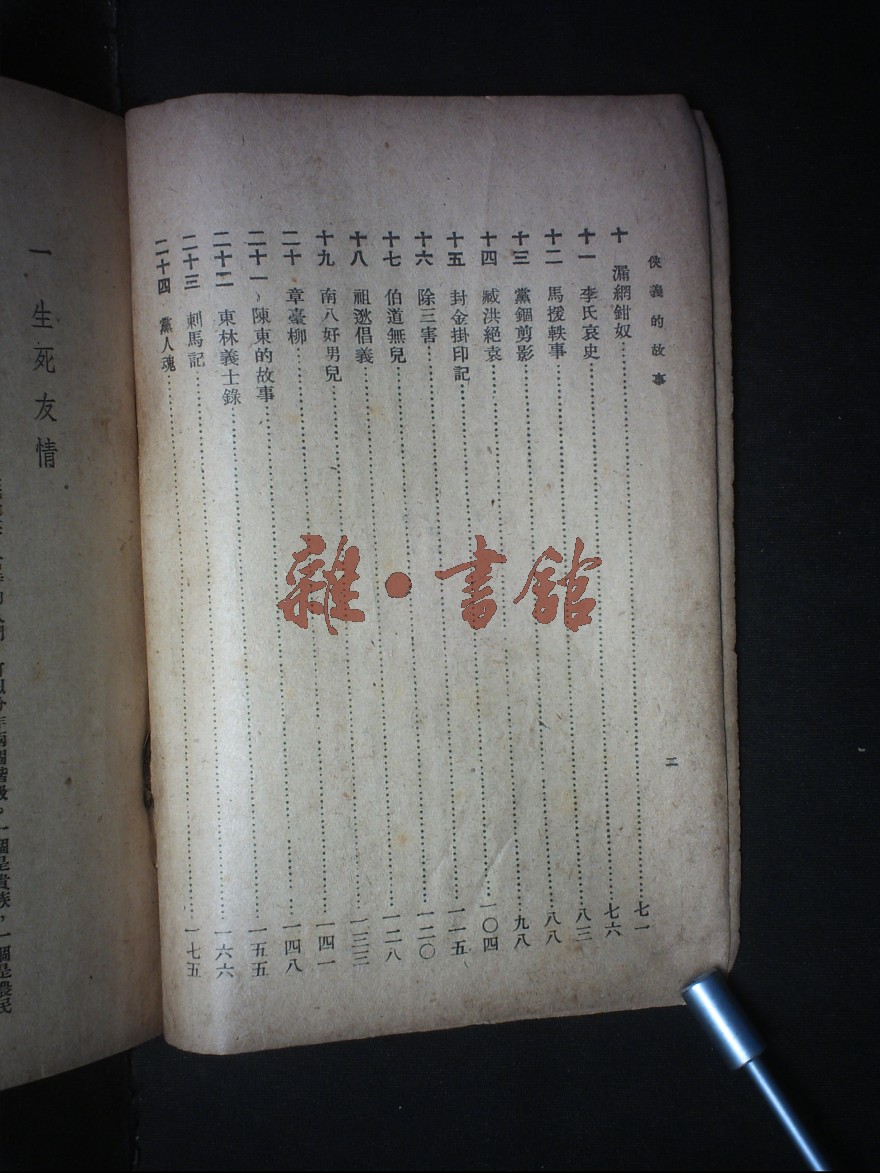 俠義的故事
十 漏網鉗奴……七一
十一 李氏哀史……七六
十二 馬援軼事……八三
十三 黨錮剪影……八八
十四 臧洪絕袁……九八
十五 封金掛印記……一〇四
十六 除三害……一一五
十七 伯道無兒……一二〇
十八 祖逖倡義……一二八
十九 南八好男兒……一三三
二十 章臺柳……一四一
二十一 陳東的故事……一四八
二十二 東林義士錄……一五五
二十三 刺馬記……一六六
二十四 黨人魂……一七五
二
一 生死友情
兩個階級。一個是貴族，一個是農民
雜·書館